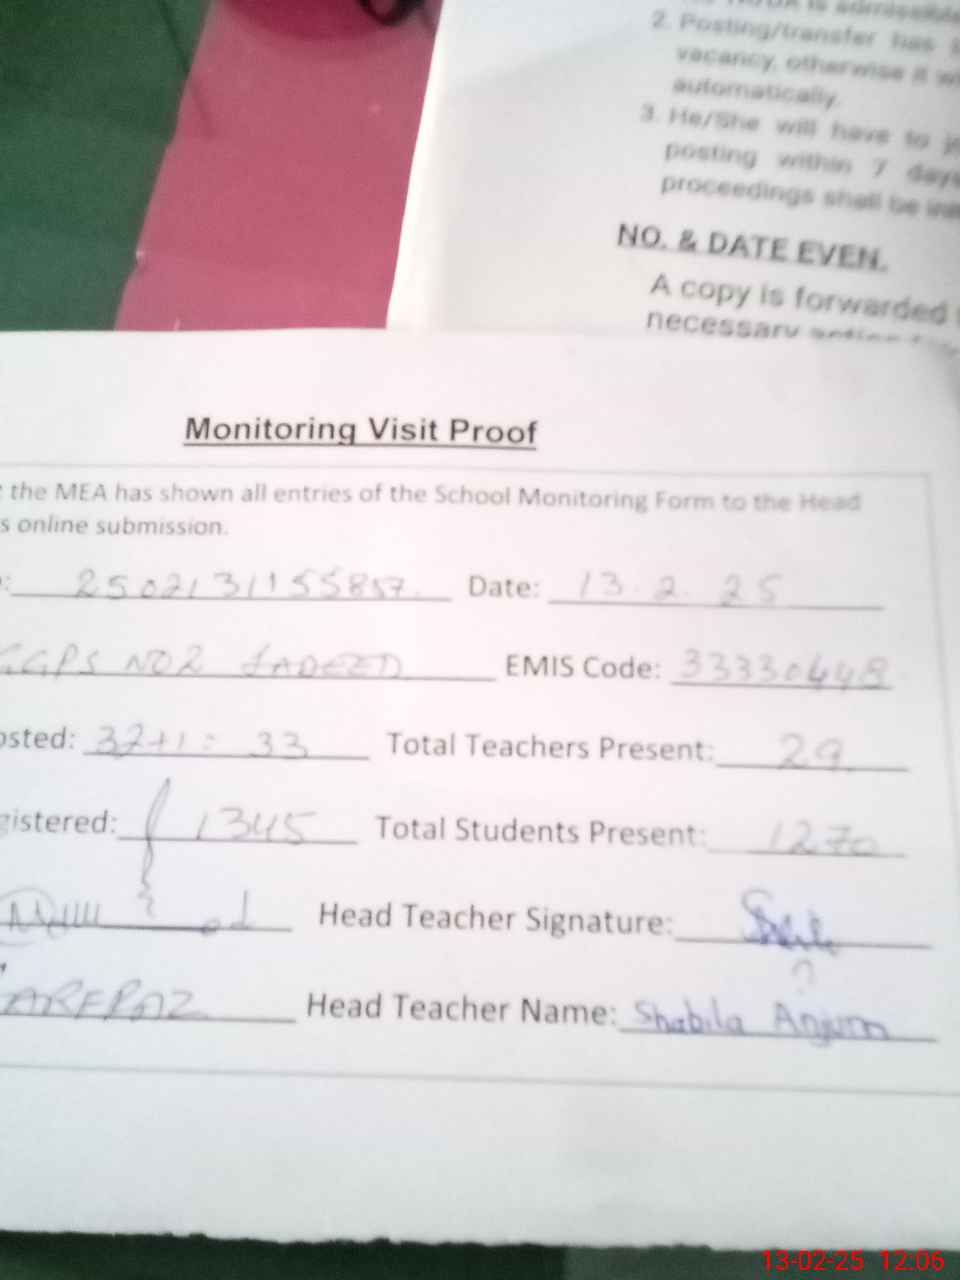 is admissible
2. Posting/transfer has
vacancy, otherwise it
automatically.
3. He/She will have to
posting within 7 days
proceedings shall be
NO. & DATE EVEN.
A copy is forwarded
necessary
Monitoring Visit Proof
the MEA has shown all entries of the School Monitoring Form to the Head
s online submission.
: 2502131155857 Date: 13.2.25
GGPS NO2 EMIS Code: 33330448
osted: 32+1= 33 Total Teachers Present: 29
gistered: 1345 Total Students Present: 1270
Head Teacher Signature:
Head Teacher Name: Shabila Anjum
13-02-25 12:06